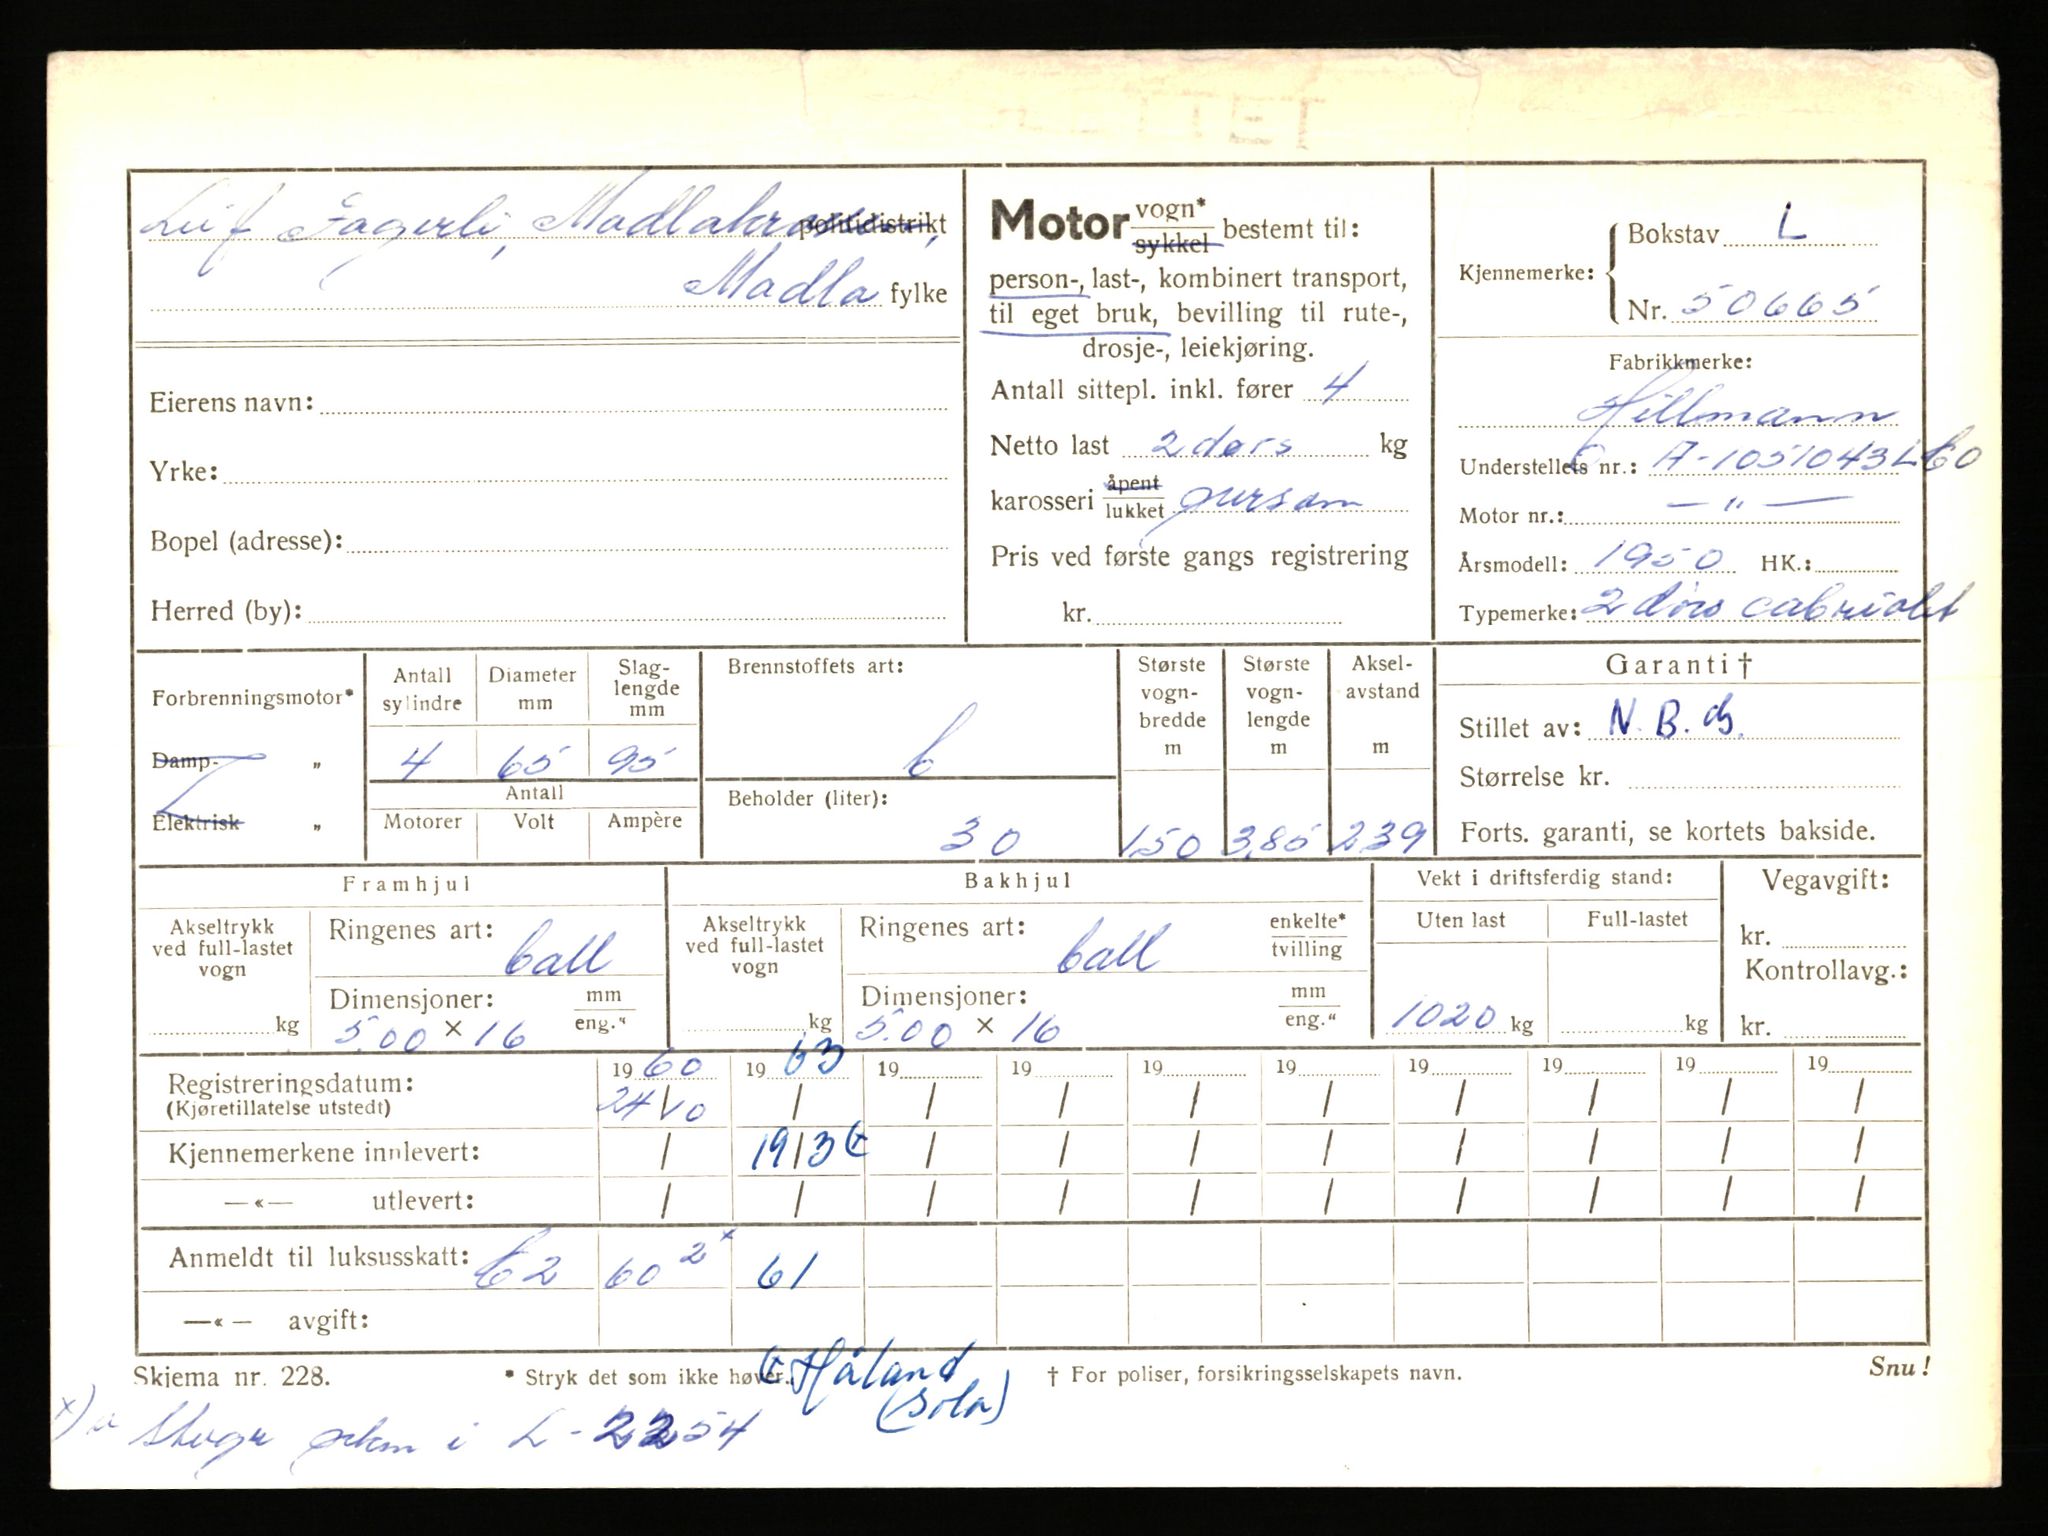 Leif Fagerli, politidistrikt
Madla fylke
Eierens navn:
Yrke:
Bopel (adresse):
Herred (by):
Motor vogn* sykkel bestemt til:
person-, last-, kombinert transport,
til eget bruk, bevilling til rute-,
drosje-, leiekjøring.
Antall sittepl. inkl. fører 4
Netto last 2 dørs kg
karosseri åpent lukket person
Pris ved første gangs registrering
kr.
Kjennemerke: Bokstav L
Nr. 50665
Fabrikkmerke:
Hillmann
Understellets nr.: A-1051043
Motor nr.: — " —
Årsmodell: 1950 HK.:
Typemerke: 2 dørs cabriolet
Forbrenningsmotor*
Damp- „
Elektrisk „
Antall sylindre
Diameter mm
Slag-lengde mm
4 65 95
Antall
Motorer Volt Ampère
Brennstoffets art:
b
Beholder (liter):
30
Største vogn-bredde m
150
Største vogn-lengde m
3,85
Aksel-avstand m
239
Garanti †
Stillet av: N. B.
Størrelse kr.
Forts. garanti, se kortets bakside.
Framhjul
Akseltrykk ved full-lastet vogn
kg
Ringenes art:
ball
Dimensjoner: mm eng."
5.00 × 16
Bakhjul
Akseltrykk ved full-lastet vogn
kg
Ringenes art: enkelte* tvilling
ball
Dimensjoner: mm eng."
5.00 × 16
Vekt i driftsferdig stand:
Uten last Full-lastet
1020 kg kg
Vegavgift:
kr.
Kontrollavg.:
kr.
19 60 19 63 19 19 19 19 19 19 19 19
Registreringsdatum:
(Kjøretillatelse utstedt)
24/10 / / / / / / / / /
Kjennemerkene innlevert: / 19/3 / / / / / / / /
—«— utlevert: / / / / / / / / / /
Anmeldt til luksusskatt: 60 2 x 61
—«— avgift:
Skjema nr. 228.
* Stryk det som ikke høver.
† For poliser, forsikringsselskapets navn.
Snu!
Håland
(Sola)
x) i L-2254